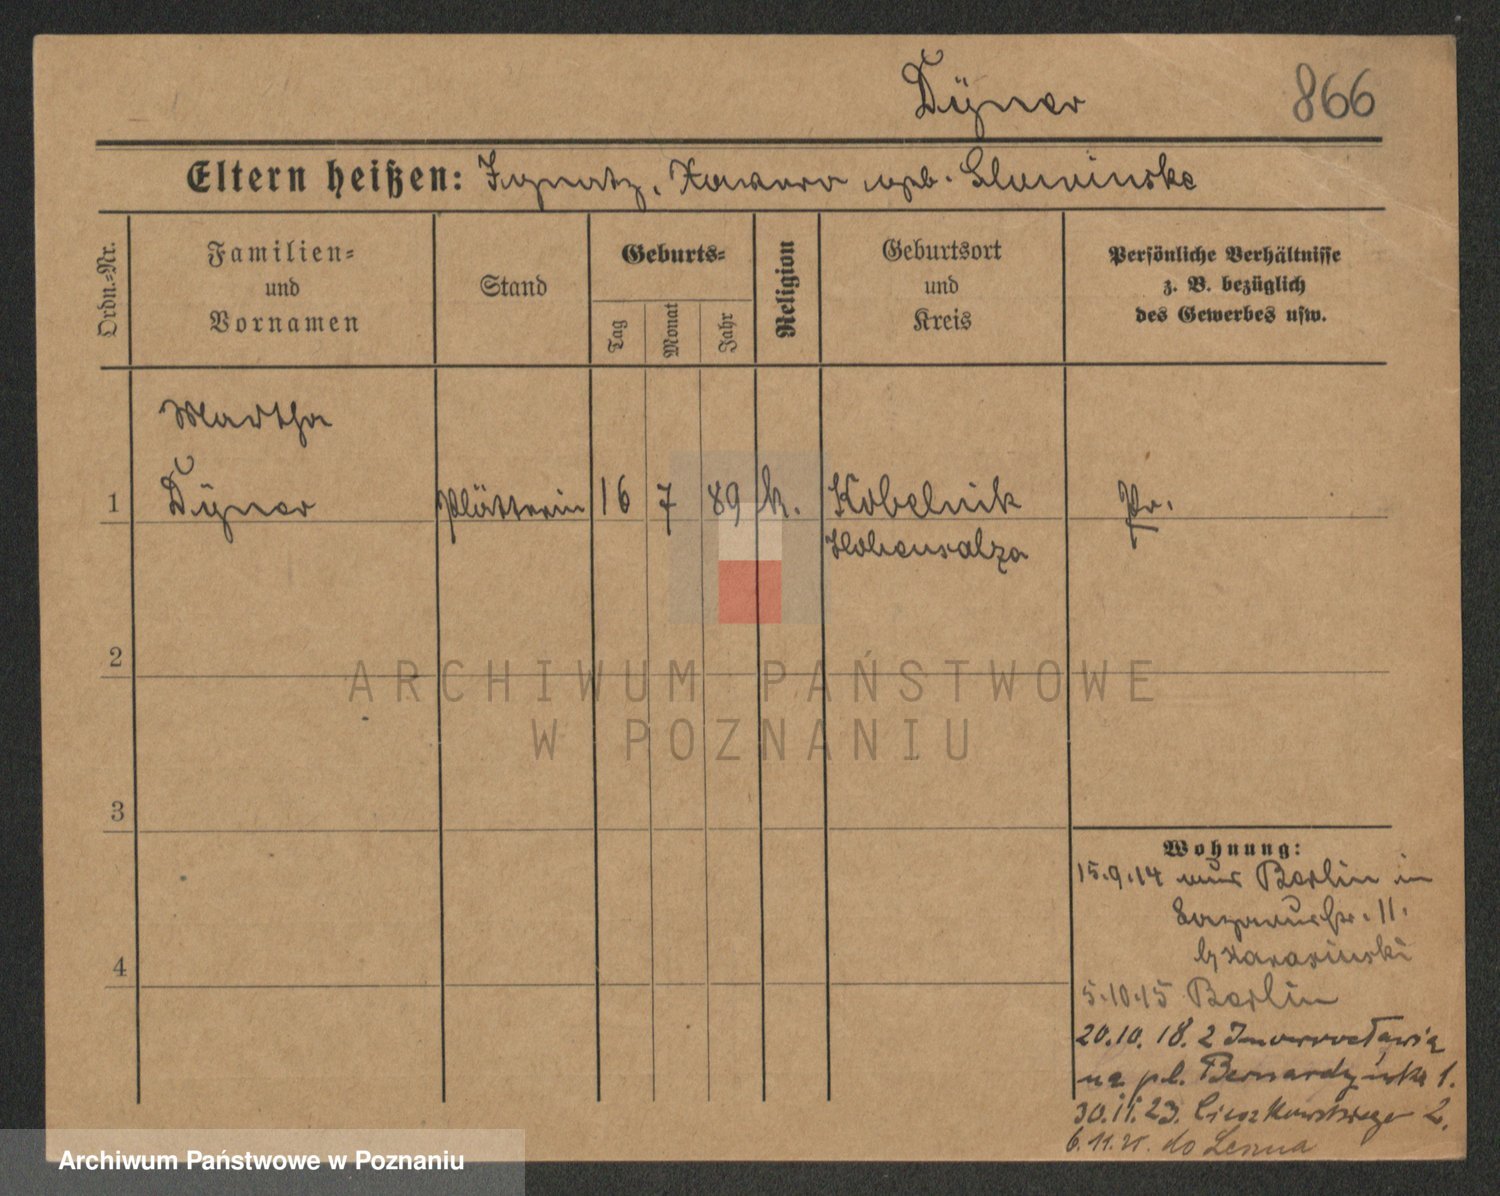 Dÿner 866
Eltern heißen: Ignatz, Xavera geb. Slowinska
Ordn.=Nr.
Familien=
und
Vornamen
Stand
Geburts=
Tag
Monat
Jahr
Religion
Geburtsort
und
Kreis
Persönliche Verhältnisse
z. B. bezüglich
des Gewerbes usw.
Martha
1 Dÿner Plätterin 16 7 89 k. Kobelnik Pr.
Hohensalza
2
3
4
Wohnung:
15.9.14 aus Berlin in
11.
b/
5.10.15 Berlin
20.10.18. z Inowrocławia
na pl. Bernardyński 1.
30.11.23. Cieszkowskiego 2.
6.11. do Leszna
ARCHIWUM PAŃSTWOWE
W POZNANIU
Archiwum Państwowe w Poznaniu